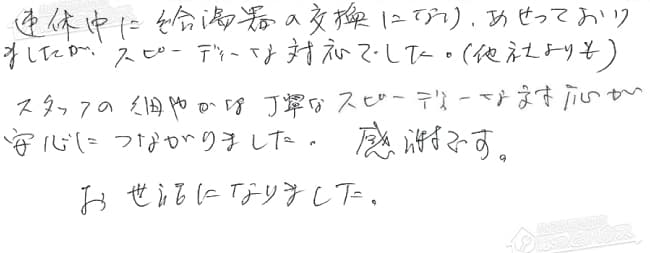 連休中に給湯器の交換になり、あせっており
ましたが、スピーディーな対応でした。(他社よりも)
スタッフの細やかな丁寧なスピーディーな対応が
安心につながりました。 感謝です。
お世話になりました。